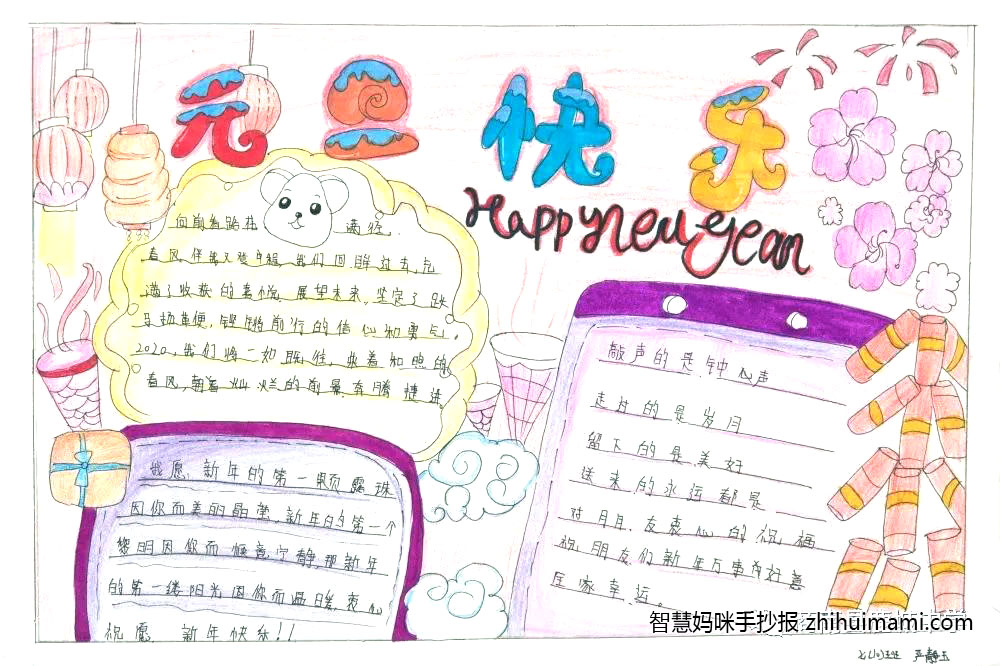 元旦快乐
Happy New year
向前看路在 满征.
春风伴我又登中程,我们回眸过去,包
满了收获的喜悦,展望未来,坚定了跃
马扬革便,铿锵前行的信心和勇气.
2020,我们将一如既往,乘着和煦的
春风,朝着灿烂的前景奔腾 捷进
我愿,新年的第一颗露珠
因你而美丽晶莹,新年的第一个
黎明因你而惬意宁静,那新年
的第一缕阳光因你而温暖,衷心
祝愿 新年快乐!!
敲声的是钟 心声
走过的是岁月
留下的是美好
送来的永远都是
对月月.友衷心的祝福
祝朋友们新年万事
家幸运。
智慧妈咪手抄报 zhihuimami.com